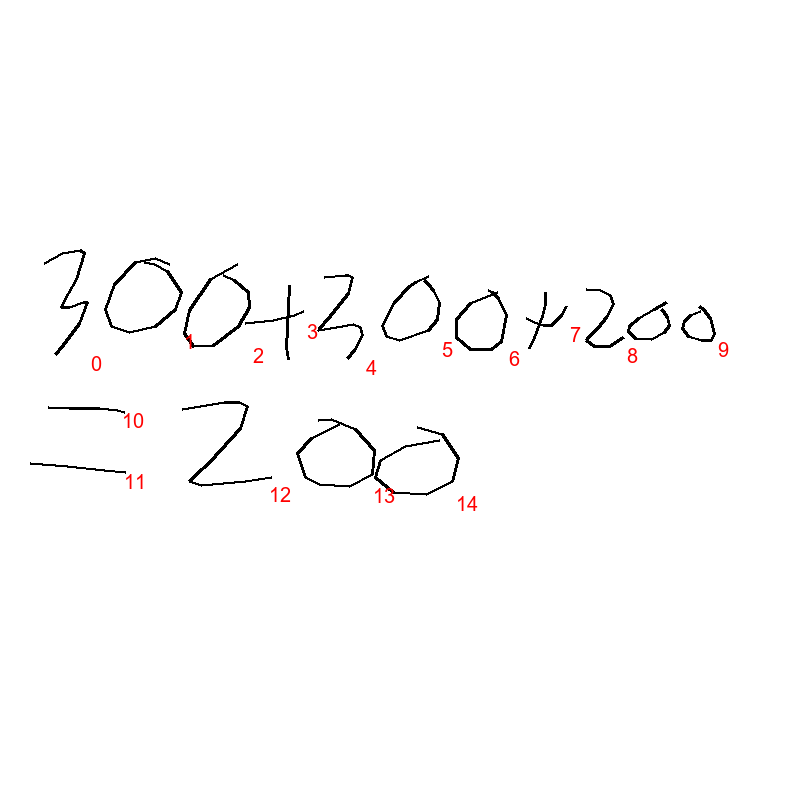 300+300+200
0 1 2 3 4 5 6 7 8 9
=200
10
11 12 13 14